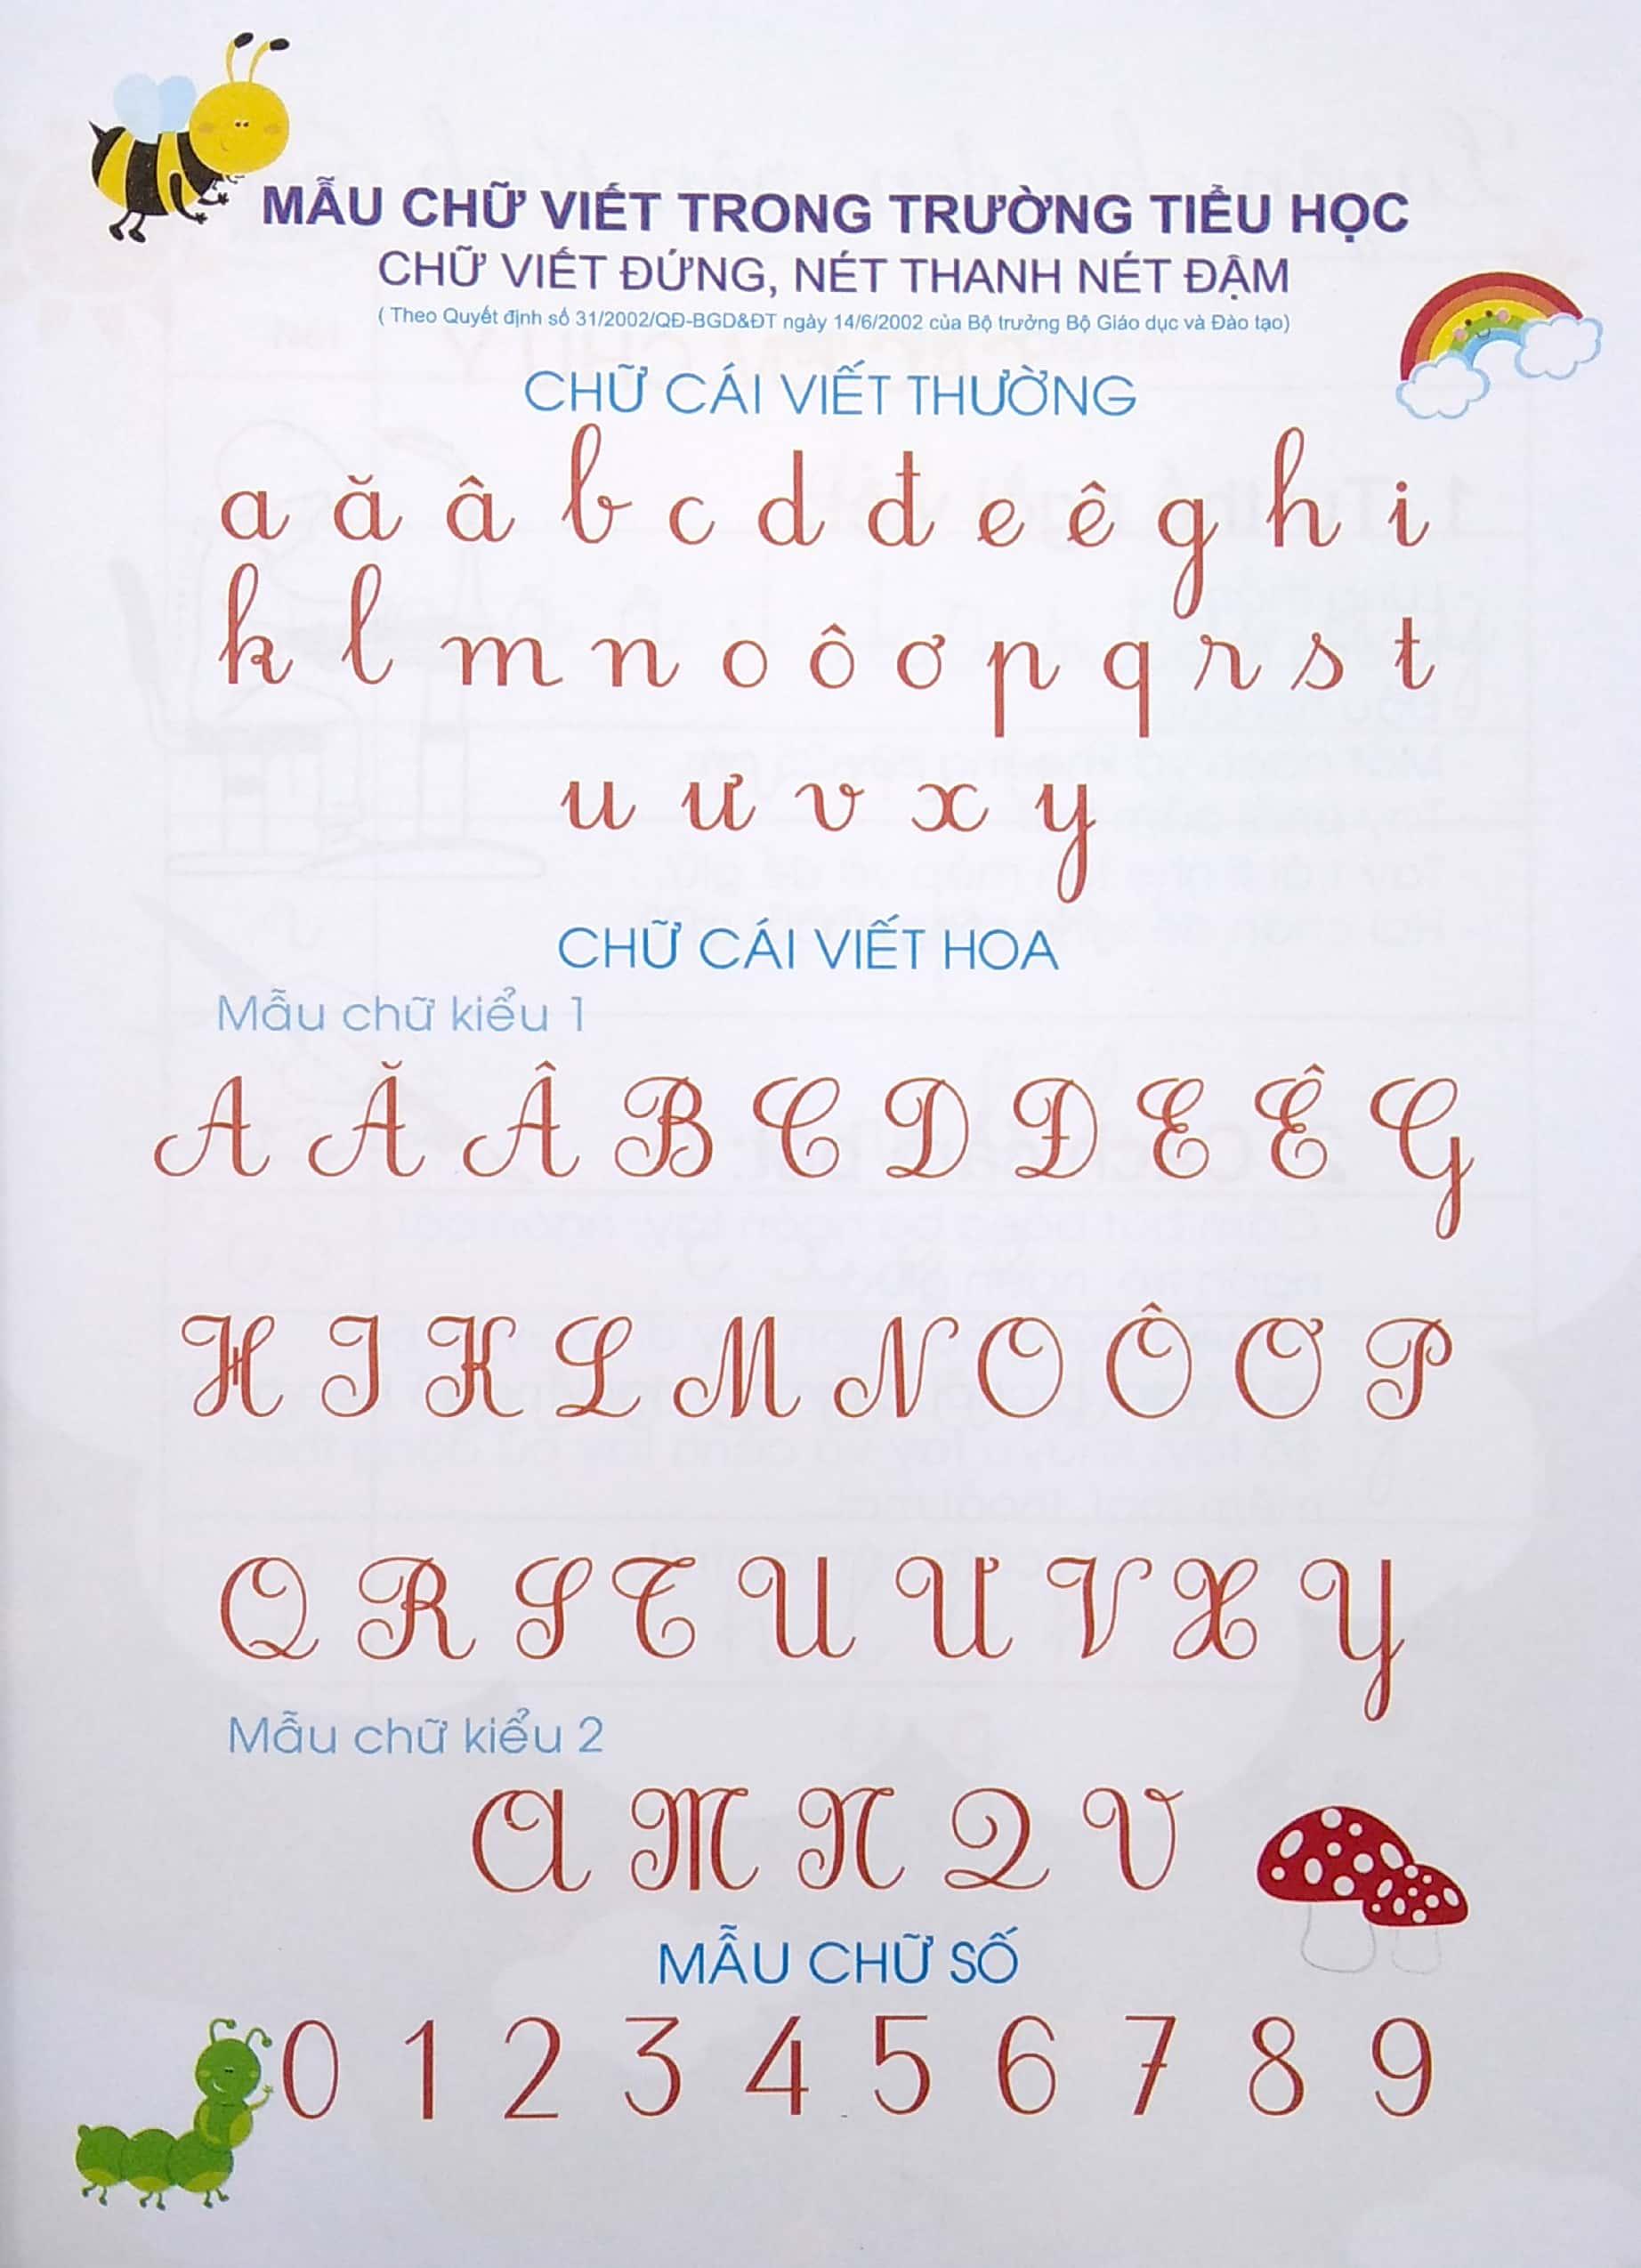 MẪU CHỮ VIẾT TRONG TRƯỜNG TIỂU HỌC
CHỮ VIẾT ĐỨNG, NÉT THANH NÉT ĐẬM
( Theo Quyết định số 31/2002/QĐ-BGD&ĐT ngày 14/6/2002 của Bộ trưởng Bộ Giáo dục và Đào tạo)
CHỮ CÁI VIẾT THƯỜNG
a ă â b c d đ e ê g h i
k l m n o ô ơ p q r s t
u ư v x y
CHỮ CÁI VIẾT HOA
Mẫu chữ kiểu 1
A Ă Â B C D Đ E Ê G
H I K L M N O Ô Ơ P
Q R S T U Ư V X Y
Mẫu chữ kiểu 2
A M N Q V
MẪU CHỮ SỐ
0 1 2 3 4 5 6 7 8 9